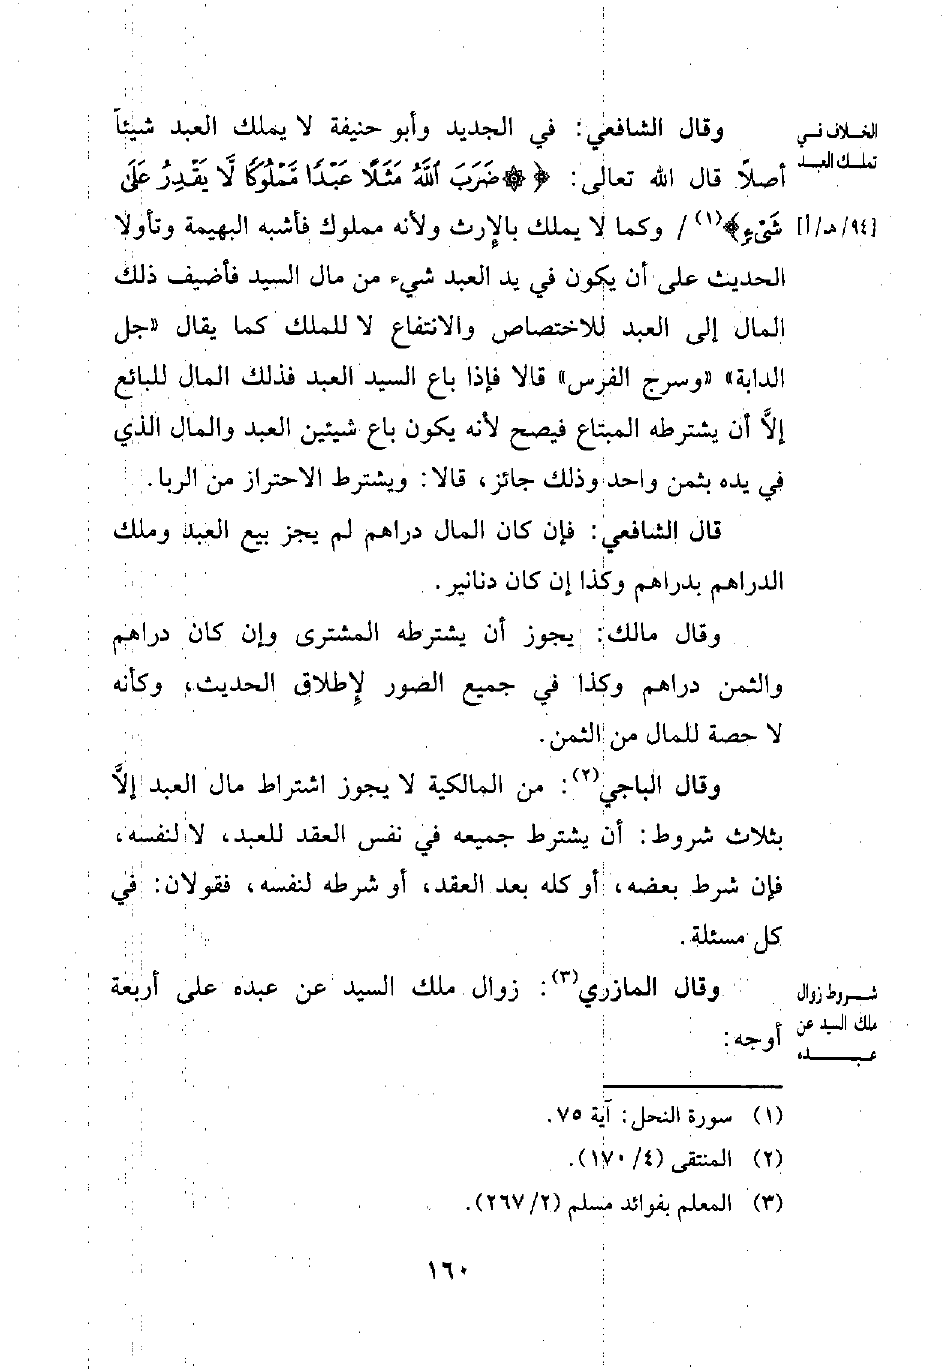 الخلاف في
تملك العبد
وقال الشافعي: في الجديد وأبو حنيفة لا يملك العبد شيئاً
أصلاً قال الله تعالى: ﴿ ۞ ضَرَبَ ٱللَّهُ مَثَلًا عَبْدًا مَّمْلُوكًا لَّا يَقْدِرُ عَلَىٰ
[٩٤/هـ/أ] شَيْءٍ﴾(١) / وكما لا يملك بالإرث ولأنه مملوك فأشبه البهيمة وتأولا
الحديث على أن يكون في يد العبد شيء من مال السيد فأضيف ذلك
المال إلى العبد للاختصاص والانتفاع لا للملك كما يقال «جل
الدابة» «وسرج الفرس» قالا فإذا باع السيد العبد فذلك المال للبائع
إلاَّ أن يشترطه المبتاع فيصح لأنه يكون باع شيئين العبد والمال الذي
في يده بثمن واحد وذلك جائز، قالا: ويشترط الاحتراز من الربا.
قال الشافعي: فإن كان المال دراهم لم يجز بيع العبد وملك
الدراهم بدراهم وكذا إن كان دنانير.
وقال مالك: يجوز أن يشترطه المشترى وإن كان دراهم
والثمن دراهم وكذا في جميع الصور لإطلاق الحديث، وكأنه
لا حصة للمال من الثمن.
وقال الباجي(٢): من المالكية لا يجوز اشتراط مال العبد إلاَّ
بثلاث شروط: أن يشترط جميعه في نفس العقد للعبد، لا لنفسه،
فإن شرط بعضه، أو كله بعد العقد، أو شرطه لنفسه، فقولان: في
كل مسئلة.
شروط زوال
ملك السيد عن
عبده
وقال المازري(٣): زوال ملك السيد عن عبده على أربعة
أوجه:
(١) سورة النحل: آية ٧٥.
(٢) المنتقى (٤/ ١٧٠).
(٣) المعلم بفوائد مسلم (٢/ ٢٦٧).
١٦٠